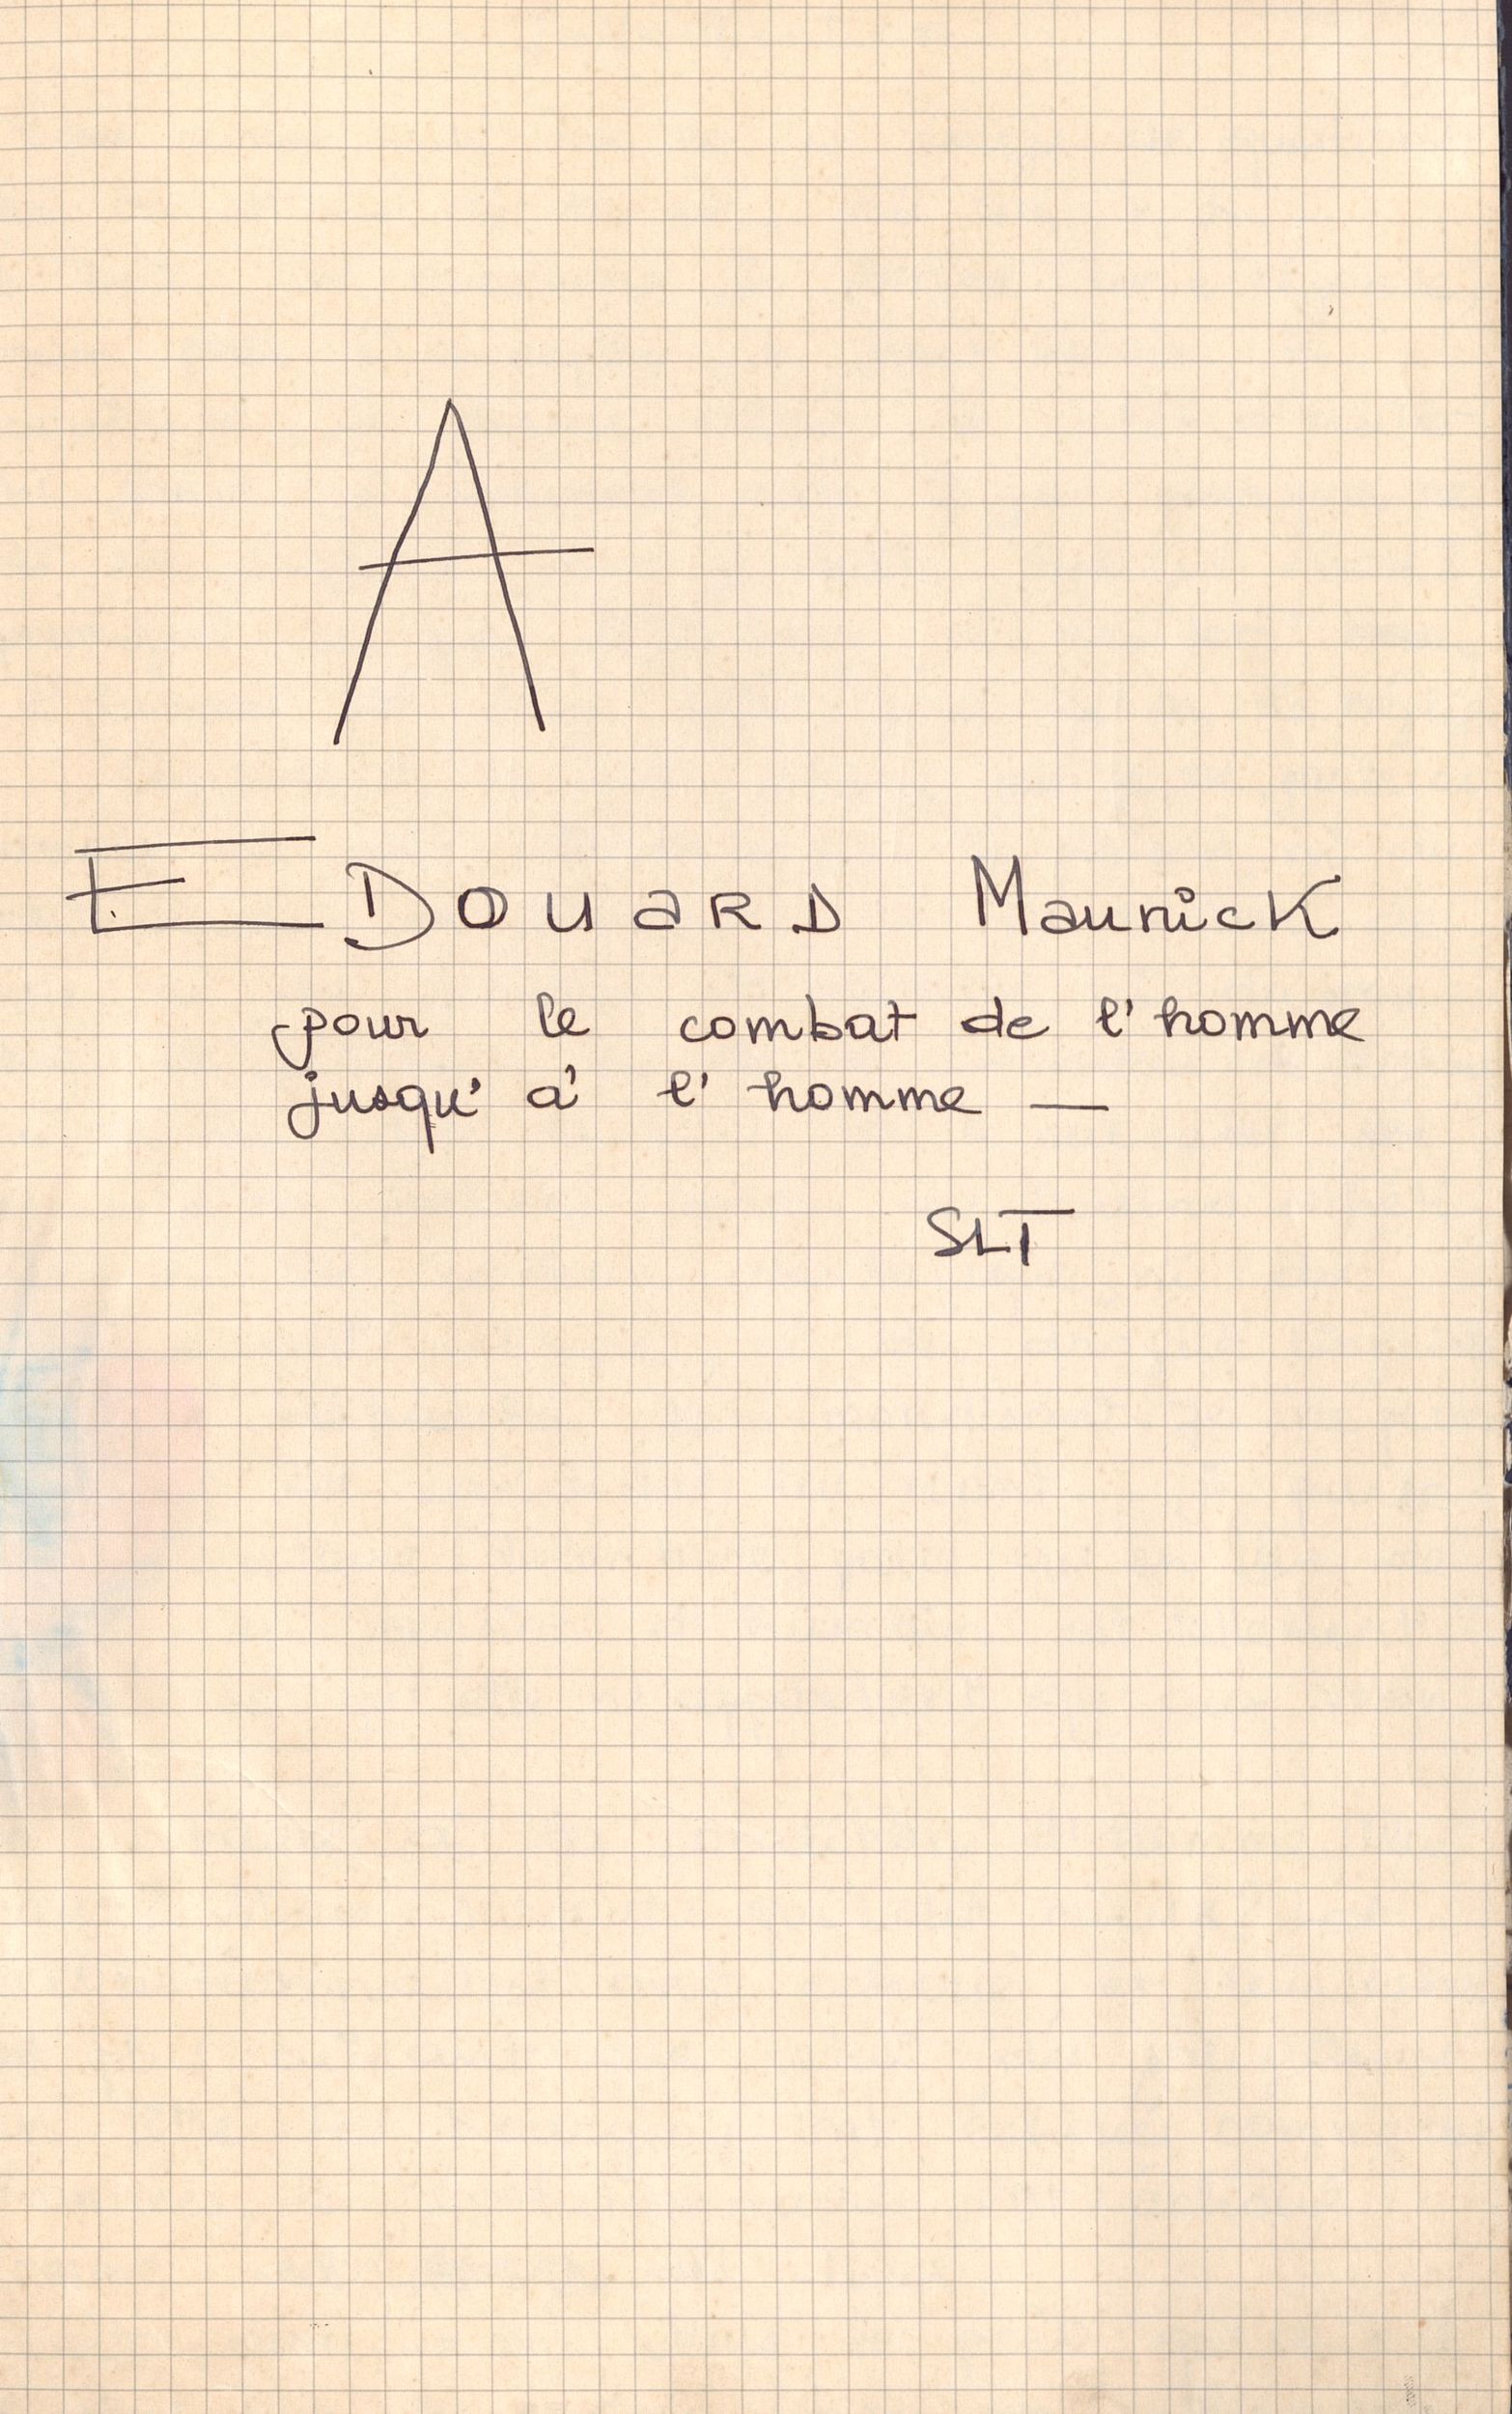 A
EDOUARD Maunick
pour le combat de l'homme
jusqu'à l'homme —
SLT